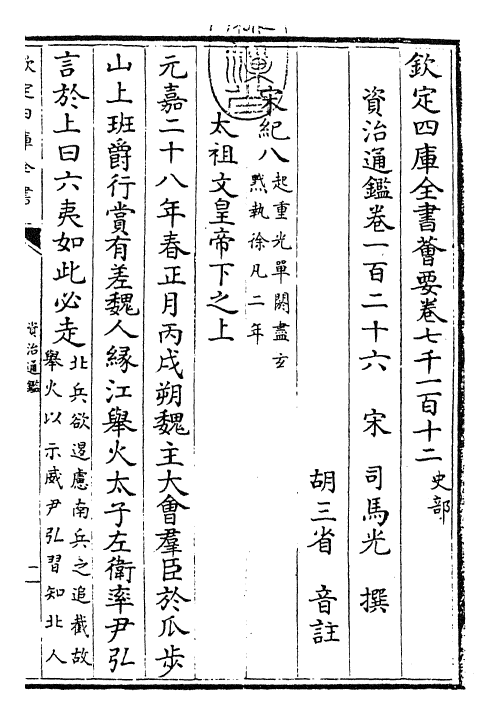 欽定四庫全書薈要卷七千一百十二 史部
資治通鑑卷一百二十六 宋 司馬光 撰
胡三省 音註
宋紀八 起重光單閼盡玄
黓執徐凡二年
太祖文皇帝下之上
元嘉二十八年春正月丙戌朔魏主大會羣臣於瓜步
山上班爵行賞有差魏人緣江舉火太子左衛率尹弘
言於上曰六夷如此必走 北兵欲退慮南兵之追截故
舉火以示威尹弘習知北人
欽定四庫全書
資治通鑑
一